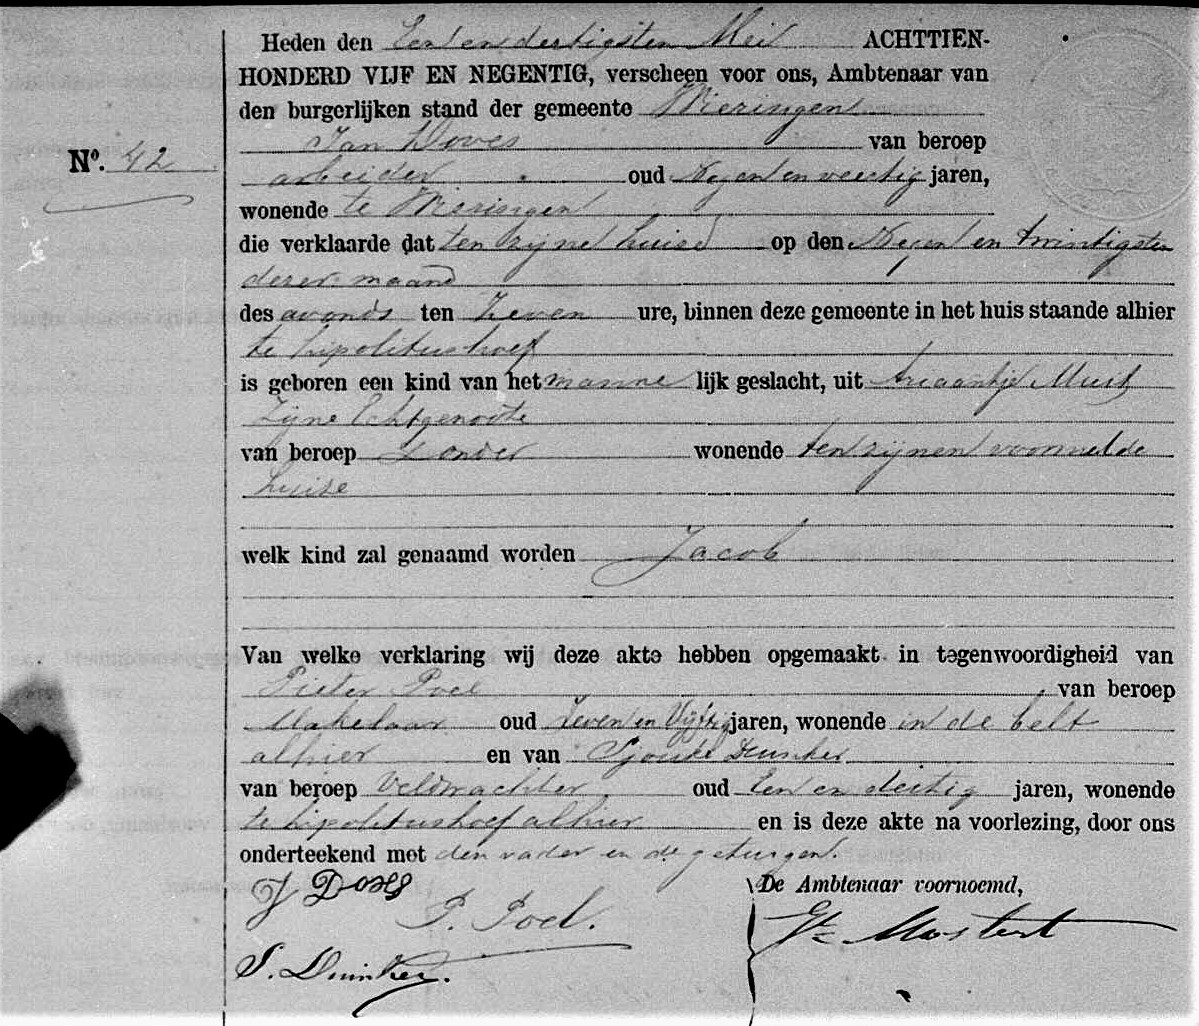 Heden den Een en dertigsten Mei ACHTTIEN-
HONDERD VIJF EN NEGENTIG, verscheen voor ons, Ambtenaar van
den burgerlijken stand der gemeente Wieringen
Jan Doves van beroep
No. 42
arbeider oud Negen en veertig jaren,
wonende te Wieringen
die verklaarde dat ten zijnen huise op den Negen en twintigsten
dezer maand
des avonds ten Zeven ure, binnen deze gemeente in het huis staande alhier
te hipolitushoef
is geboren een kind van het mannelijk geslacht, uit Maartje
Zijne Echtgenoote
van beroep Zonder wonende ten zijnen voormelde
huise
welk kind zal genaamd worden Jacob
Van welke verklaring wij deze akte hebben opgemaakt in tegenwoordigheid van
Pieter Poel van beroep
Makelaar oud Zeven en Vijftig jaren, wonende in de belt
alhier en van Duinker
van beroep Veldwachter oud Een en dertig jaren, wonende
te hipolitushoef alhier en is deze akte na voorlezing, door ons
onderteekend met den vader en de getuigen.
J Doves
De Ambtenaar voornoemd,
P. Poel.
Mostert
S. Duinker.